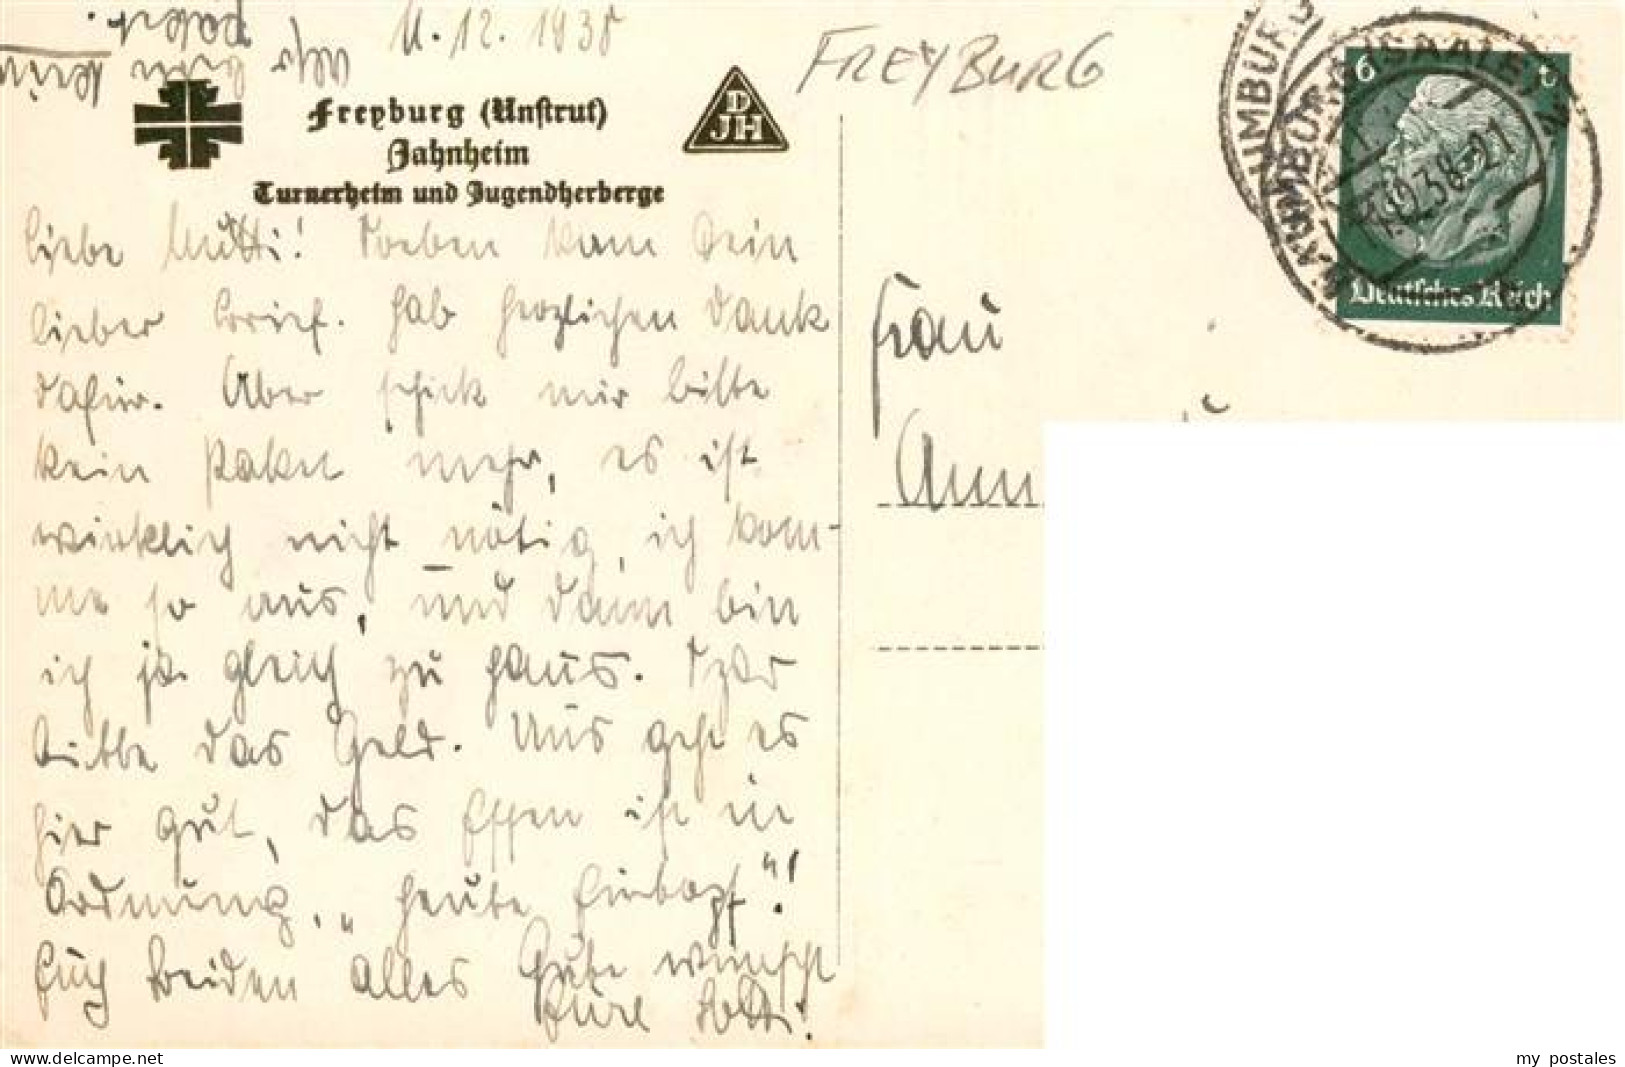 11.12.1938
FREYBURG
Freyburg (Unstrut)
Jahnheim
Turnerheim und Jugendherberge
D
JH
NAUMBURG (SAALE)
NAUMBURG
.12.38-21
6 6
Deutsches Reich
Liebe Mutti! Soeben kam Dein
lieber Brief. Hab herzlichen Dank
dafür. Aber schick mir bitte
kein Paket mehr, es ist
wirklich nicht nötig, ich kom-
me so aus, und dann bin
ich ja gleich zu Haus.
bitte das Geld. Uns geht es
hier gut, das Essen ist in
Ordnung, "heute Eintopf"!
Euch beiden alles Gute wünscht
Eure
kein
mehr
Paket.
Frau
Ann
my postales
www.delcampe.net